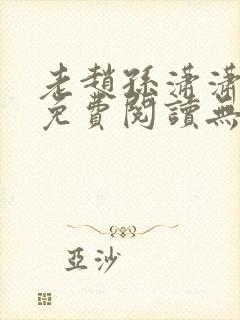 老趙孫瀟瀟
免費閱讀無
亞沙